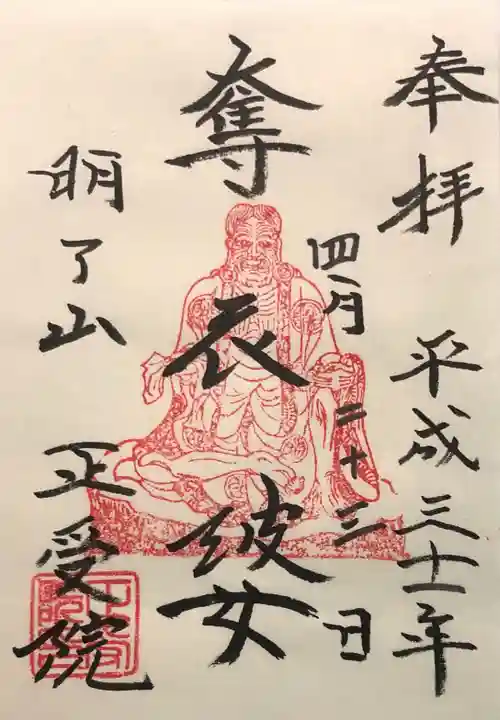 奉拝 平成三十一年
四月二十三日
奪衣婆
明了山 正受院